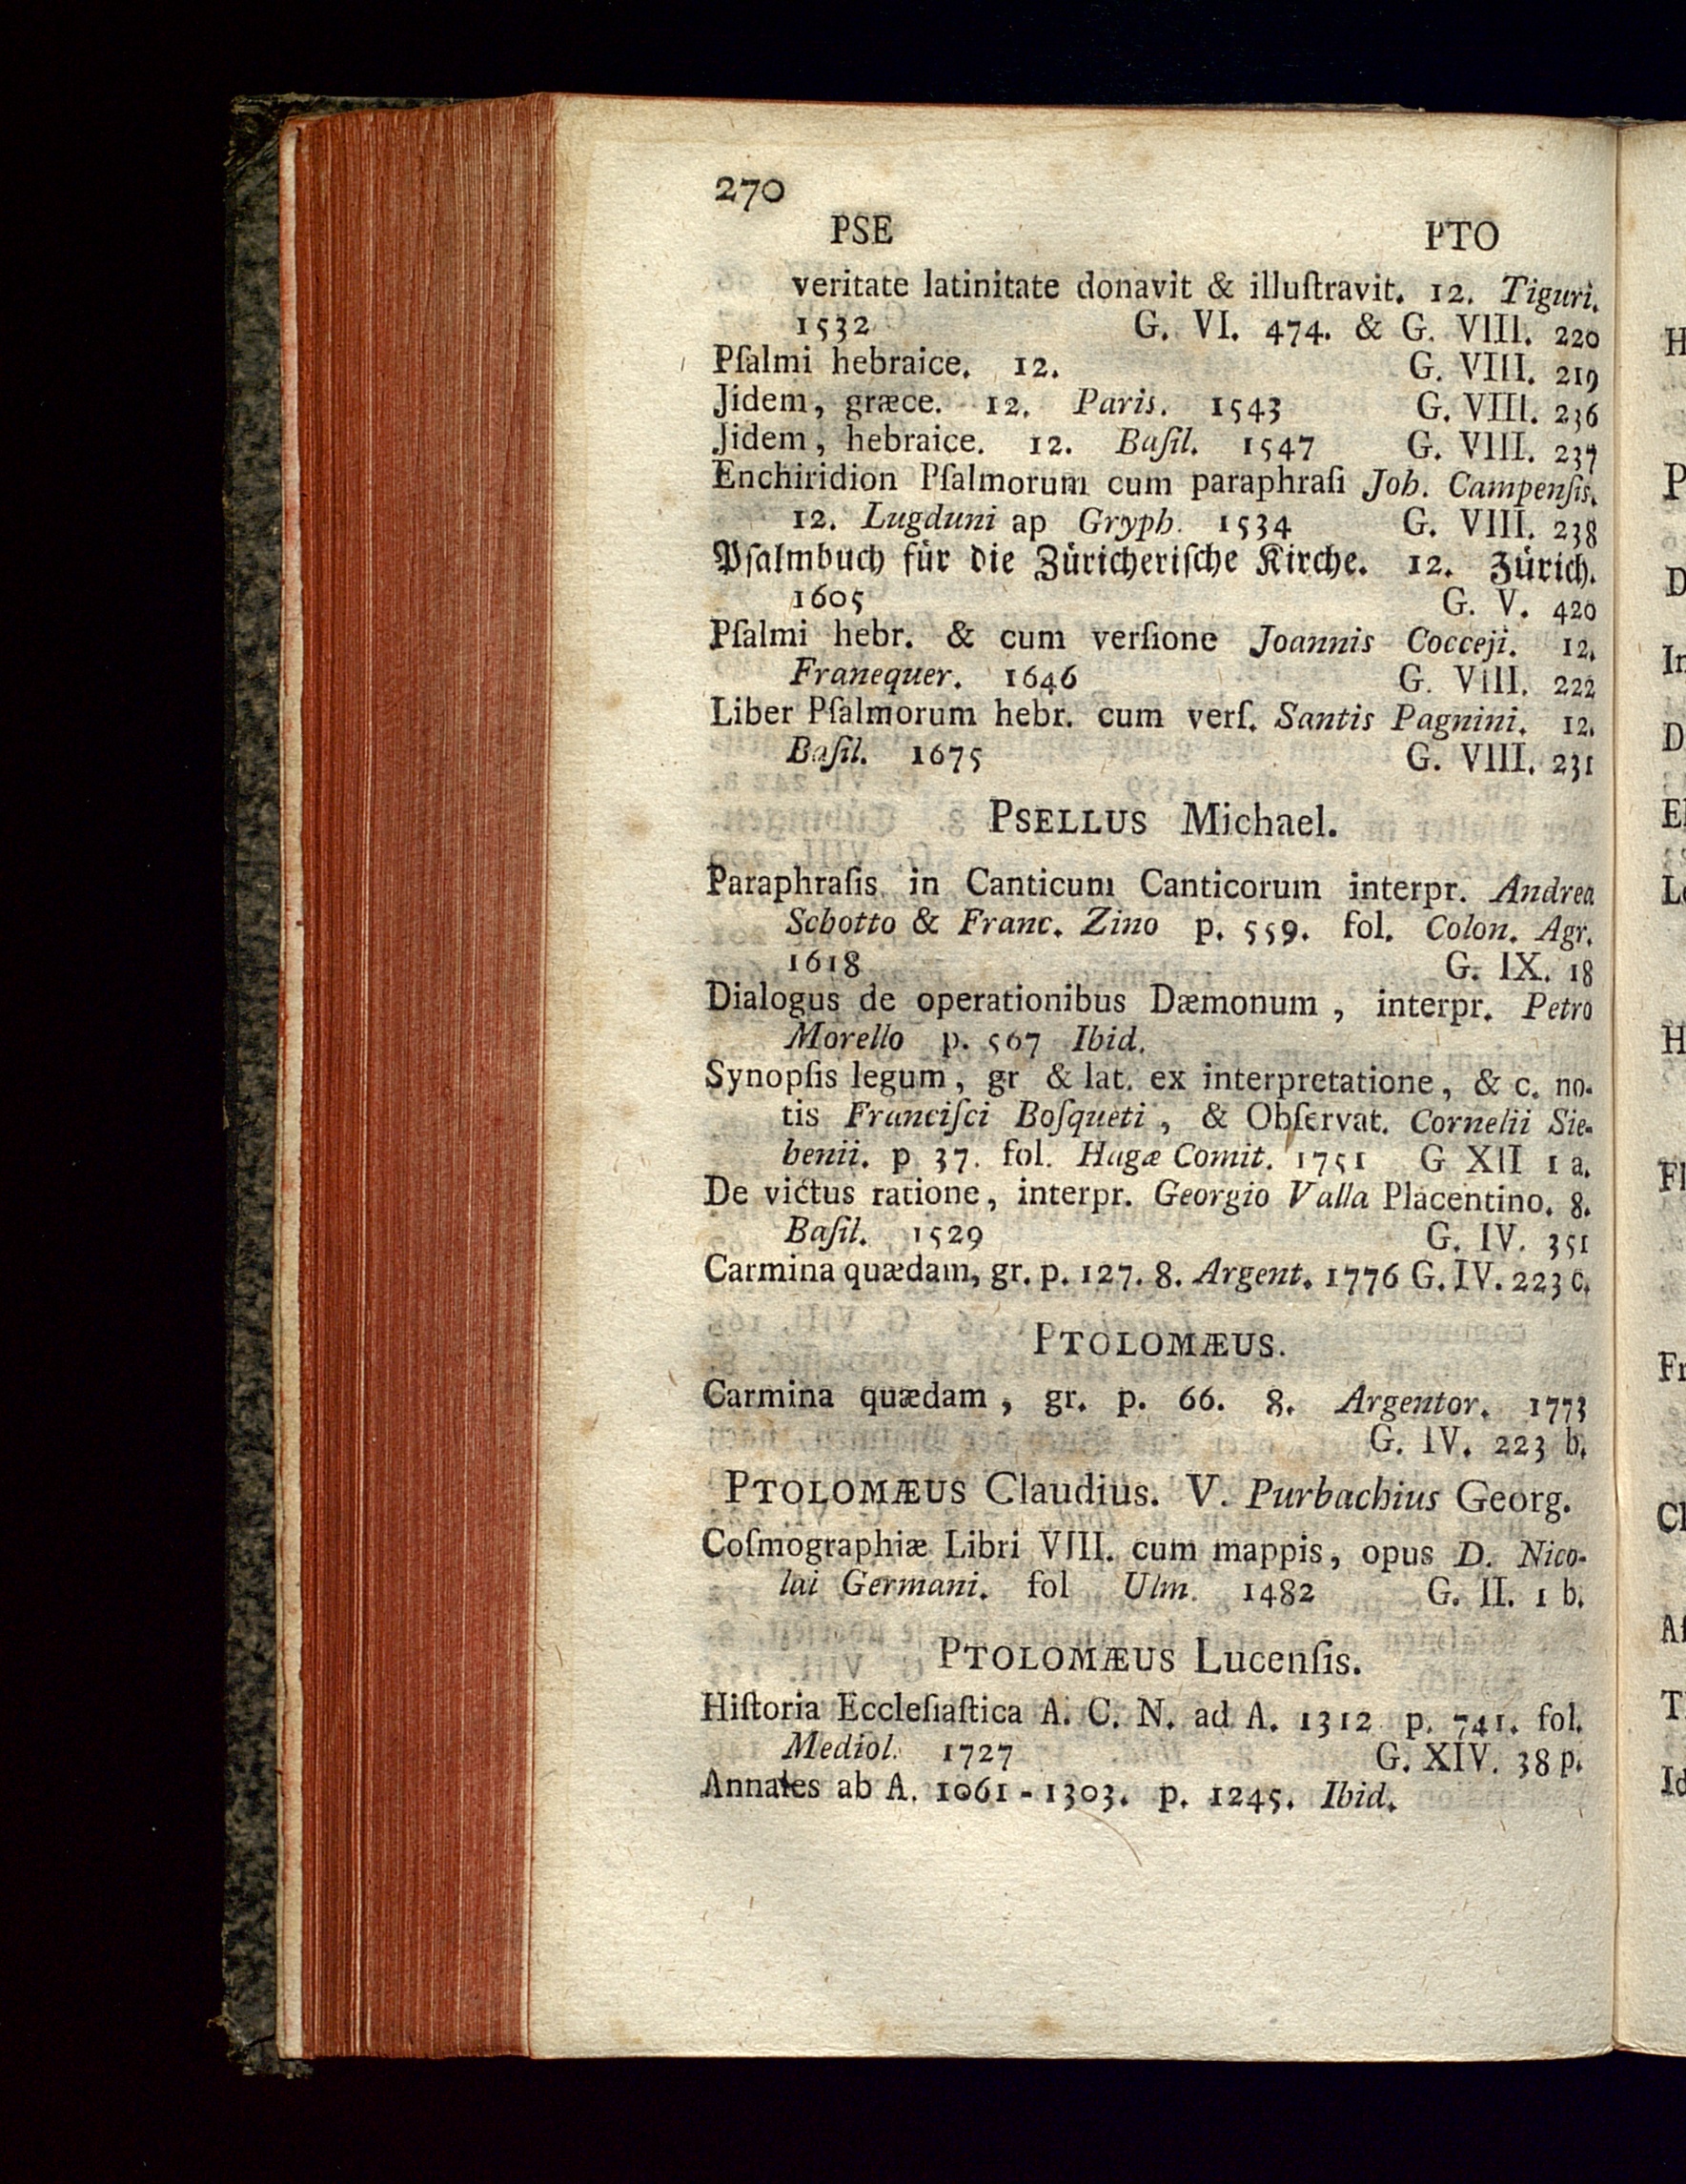 270
PSE PTO
veritate latinitate donavit & illuſtravit. 12. Tiguri.
1532 G. VI. 474. & G. VIII. 220
Pſalmi hebraice. 12. G. VIII. 219
Jidem, græce. 12. Paris. 1543 G. VIII. 236
Jidem, hebraice. 12. Baſil. 1547 G. VIII. 237
Enchiridion Pſalmorum cum paraphraſi Joh. Campenſis.
12. Lugduni ap Gryph. 1534 G. VIII. 238
Pſalmbuch für die Züricheriſche Kirche. 12. Zürich.
1605 G. V. 420
Pſalmi hebr. & cum verſione Joannis Cocceji. 12.
Franequer. 1646 G. VIII. 222
Liber Pſalmorum hebr. cum verſ. Santis Pagnini. 12.
Baſil. 1675 G. VIII. 231
PSELLUS Michael.
Paraphraſis in Canticum Canticorum interpr. Andrea
Schotto & Franc. Zino p. 559. fol. Colon. Agr.
1618 G. IX. 18
Dialogus de operationibus Dæmonum, interpr. Petro
Morello p. 567 Ibid.
Synopſis legum, gr & lat. ex interpretatione, & c. no-
tis Franciſci Boſqueti, & Obſervat. Cornelii Sie-
benii. p 37. fol. Hagæ Comit. 1751 G XII 1 a.
De victus ratione, interpr. Georgio Valla Placentino. 8.
Baſil. 1529 G. IV. 351
Carmina quædam, gr. p. 127. 8. Argent. 1776 G. IV. 223 c.
PTOLOMÆUS.
Carmina quædam, gr. p. 66. 8. Argentor. 1773
G. IV. 223 b.
PTOLOMÆUS Claudius. V. Purbachius Georg.
Coſmographiæ Libri VIII. cum mappis, opus D. Nico-
lai Germani. fol Ulm. 1482 G. II. 1 b.
PTOLOMÆUS Lucenſis.
Hiſtoria Eccleſiaſtica A. C. N. ad A. 1312 p. 741. fol.
Mediol. 1727 G. XIV. 38 p.
Annales ab A. 1061-1303. p. 1245. Ibid.